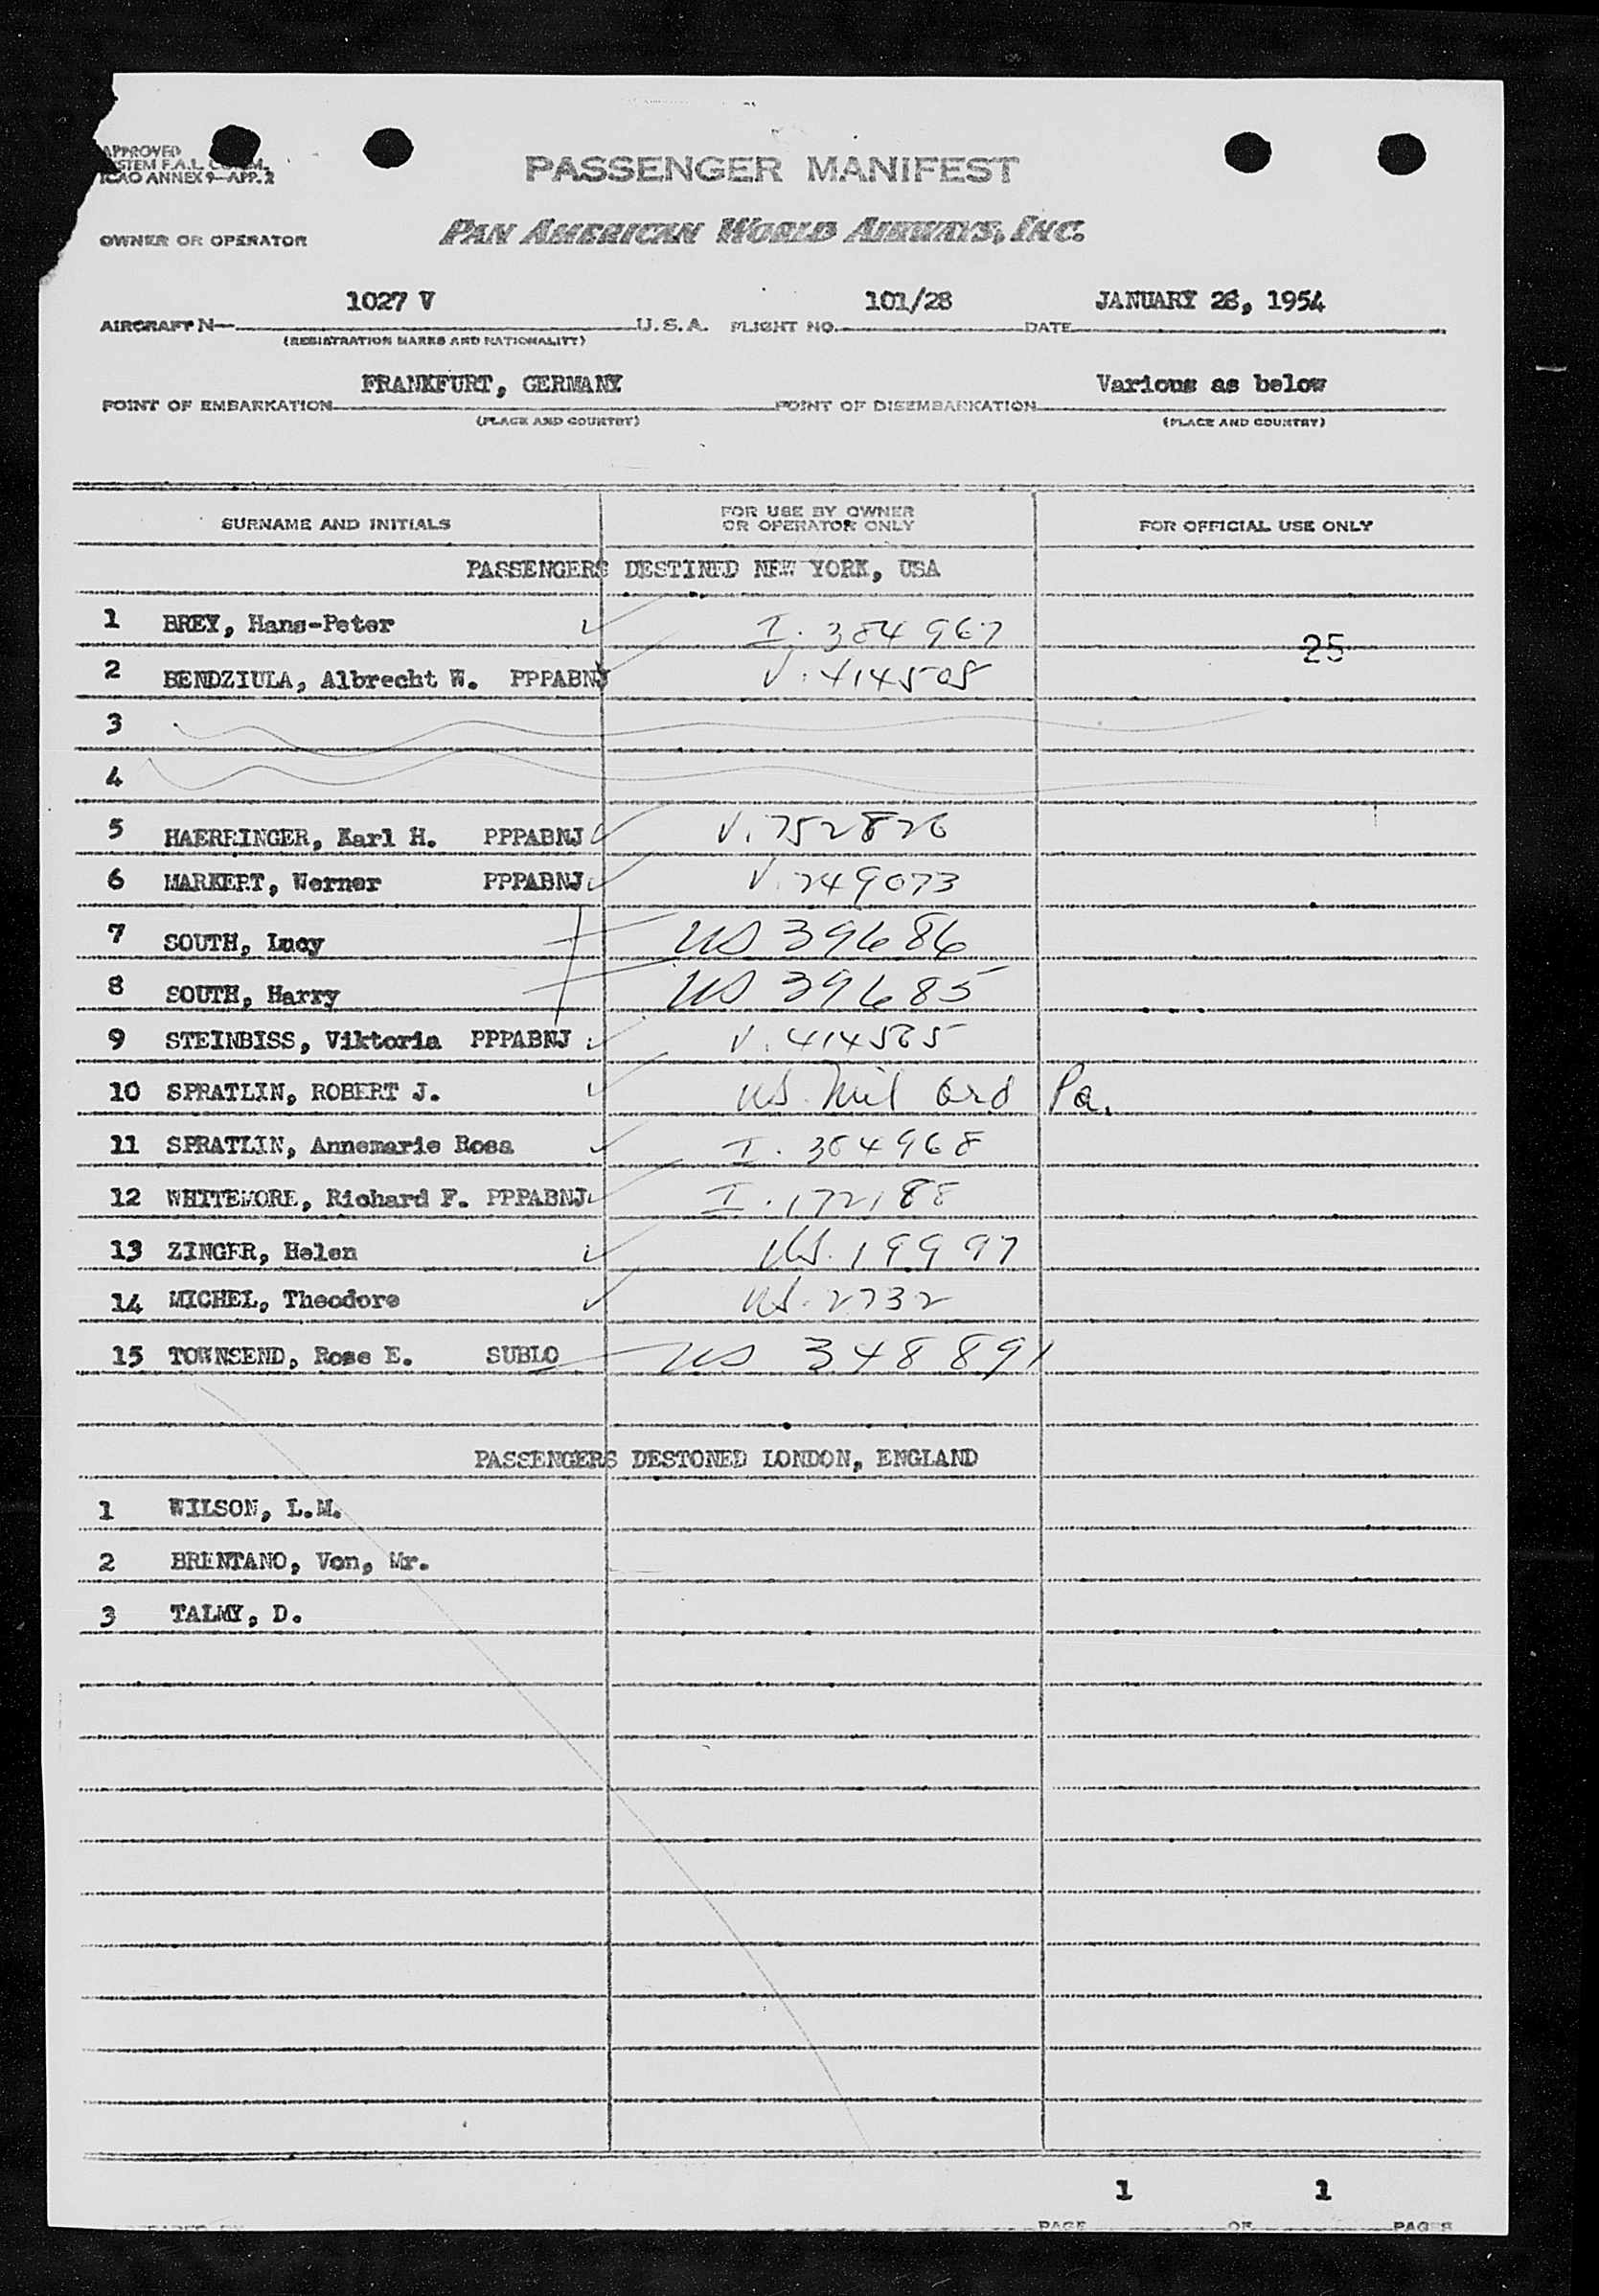 APPROVED
SYSTEM F.A.L. COMM.
ICAO ANNEX 9—APP. 2
PASSENGER MANIFEST
OWNER OR OPERATOR PAN AMERICAN WORLD AIRWAYS, INC.
1027 V 101/28 JANUARY 28, 1954
AIRCRAFT N— U.S.A. FLIGHT NO. DATE
(REGISTRATION MARKS AND NATIONALITY)
FRANKFURT, GERMANY Various as below
POINT OF EMBARKATION POINT OF DISEMBARKATION
(PLACE AND COUNTRY) (PLACE AND COUNTRY)
SURNAME AND INITIALS FOR USE BY OWNER OR OPERATOR ONLY FOR OFFICIAL USE ONLY
PASSENGERS DESTINED NEW YORK, USA
1 BREY, Hans-Peter I. 384967
25
2 BENDZIULA, Albrecht W. PPPABNJ V. 414508
3
4
5 HAERRINGER, Karl H. PPPABNJ V. 752826
6 MARKERT, Werner PPPABNJ V. 749073
7 SOUTH, Lucy US 39686
8 SOUTH, Harry US 39685
9 STEINBISS, Viktoria PPPABNJ V. 414565
10 SPRATLIN, ROBERT J. US. Mil Ord Pa.
11 SPRATLIN, Annemarie Rosa I. 384968
12 WHITEMORE, Richard F. PPPABNJ I. 172188
13 ZINGER, Helen US. 19997
14 MICHEL, Theodore US. 2732
15 TOWNSEND, Rose E. SUBLO US 348891
PASSENGERS DESTONED LONDON, ENGLAND
1 WILSON, L.M.
2 BRENTANO, Von, Mr.
3 TALMY, D.
1 1
PAGE OF PAGES